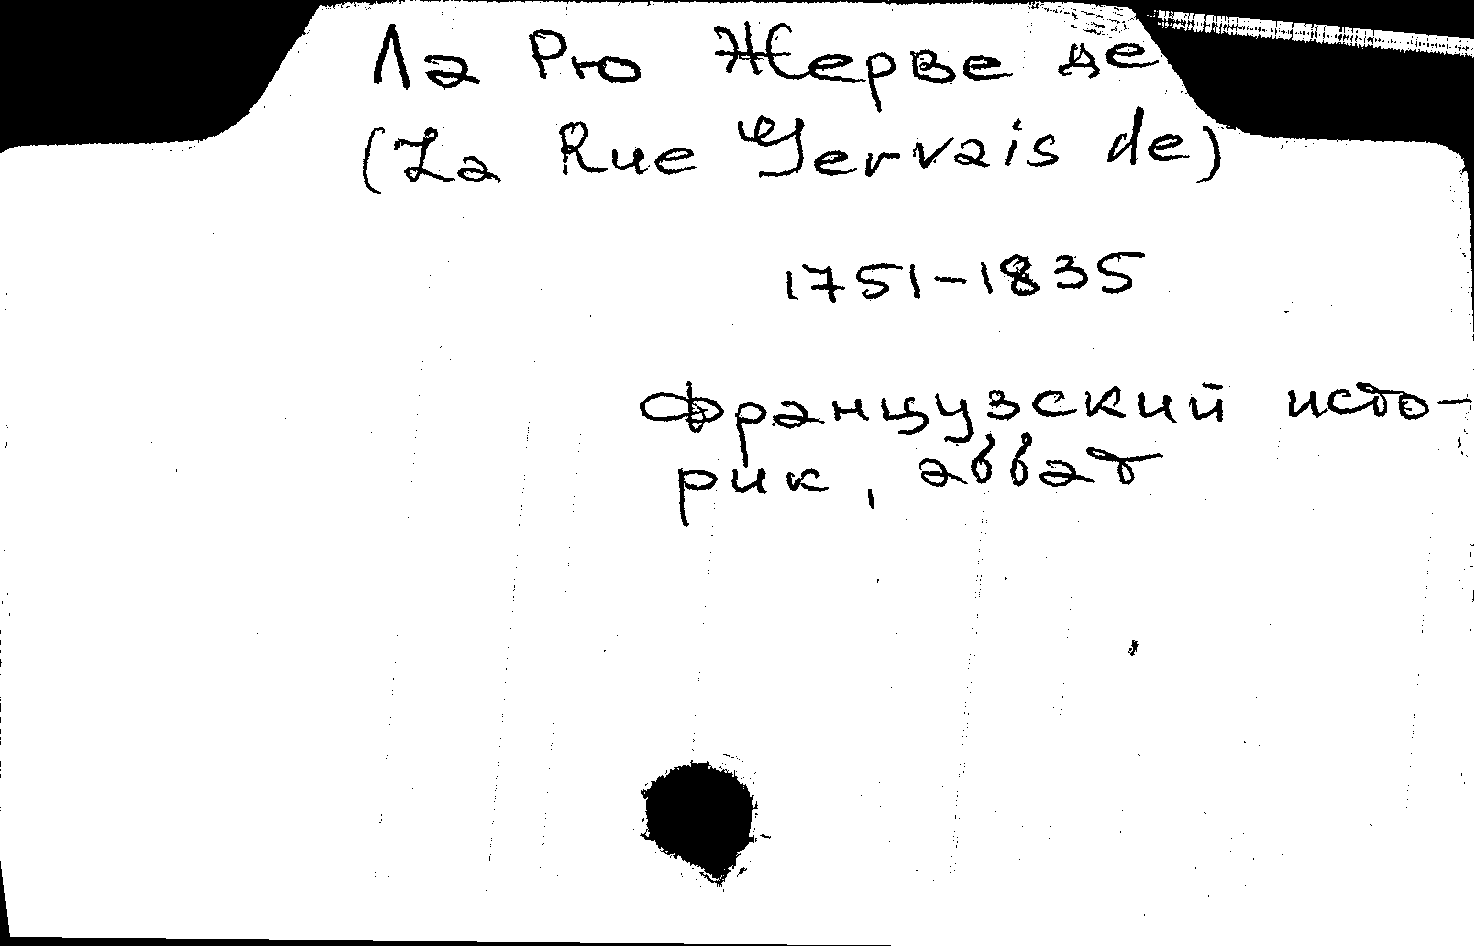 Ла Рю Жерве де
(La Rue Gervais de)
1751-1835
французский исто-
рик, аббат